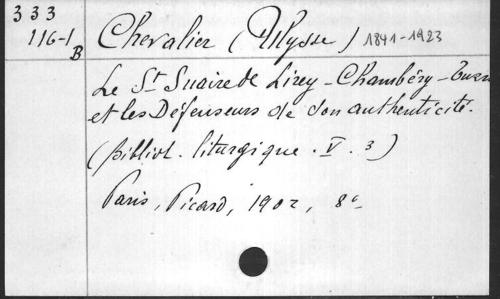 333
116-1
B
Chevalier (Ulysse) 1841-1923
Le St Suaire de Lirey-Chambéry-Turin
et les Défenseurs de son authenticité.
(Bibliot. liturgique. V. 3)
Paris, Picard, 1902, 8°